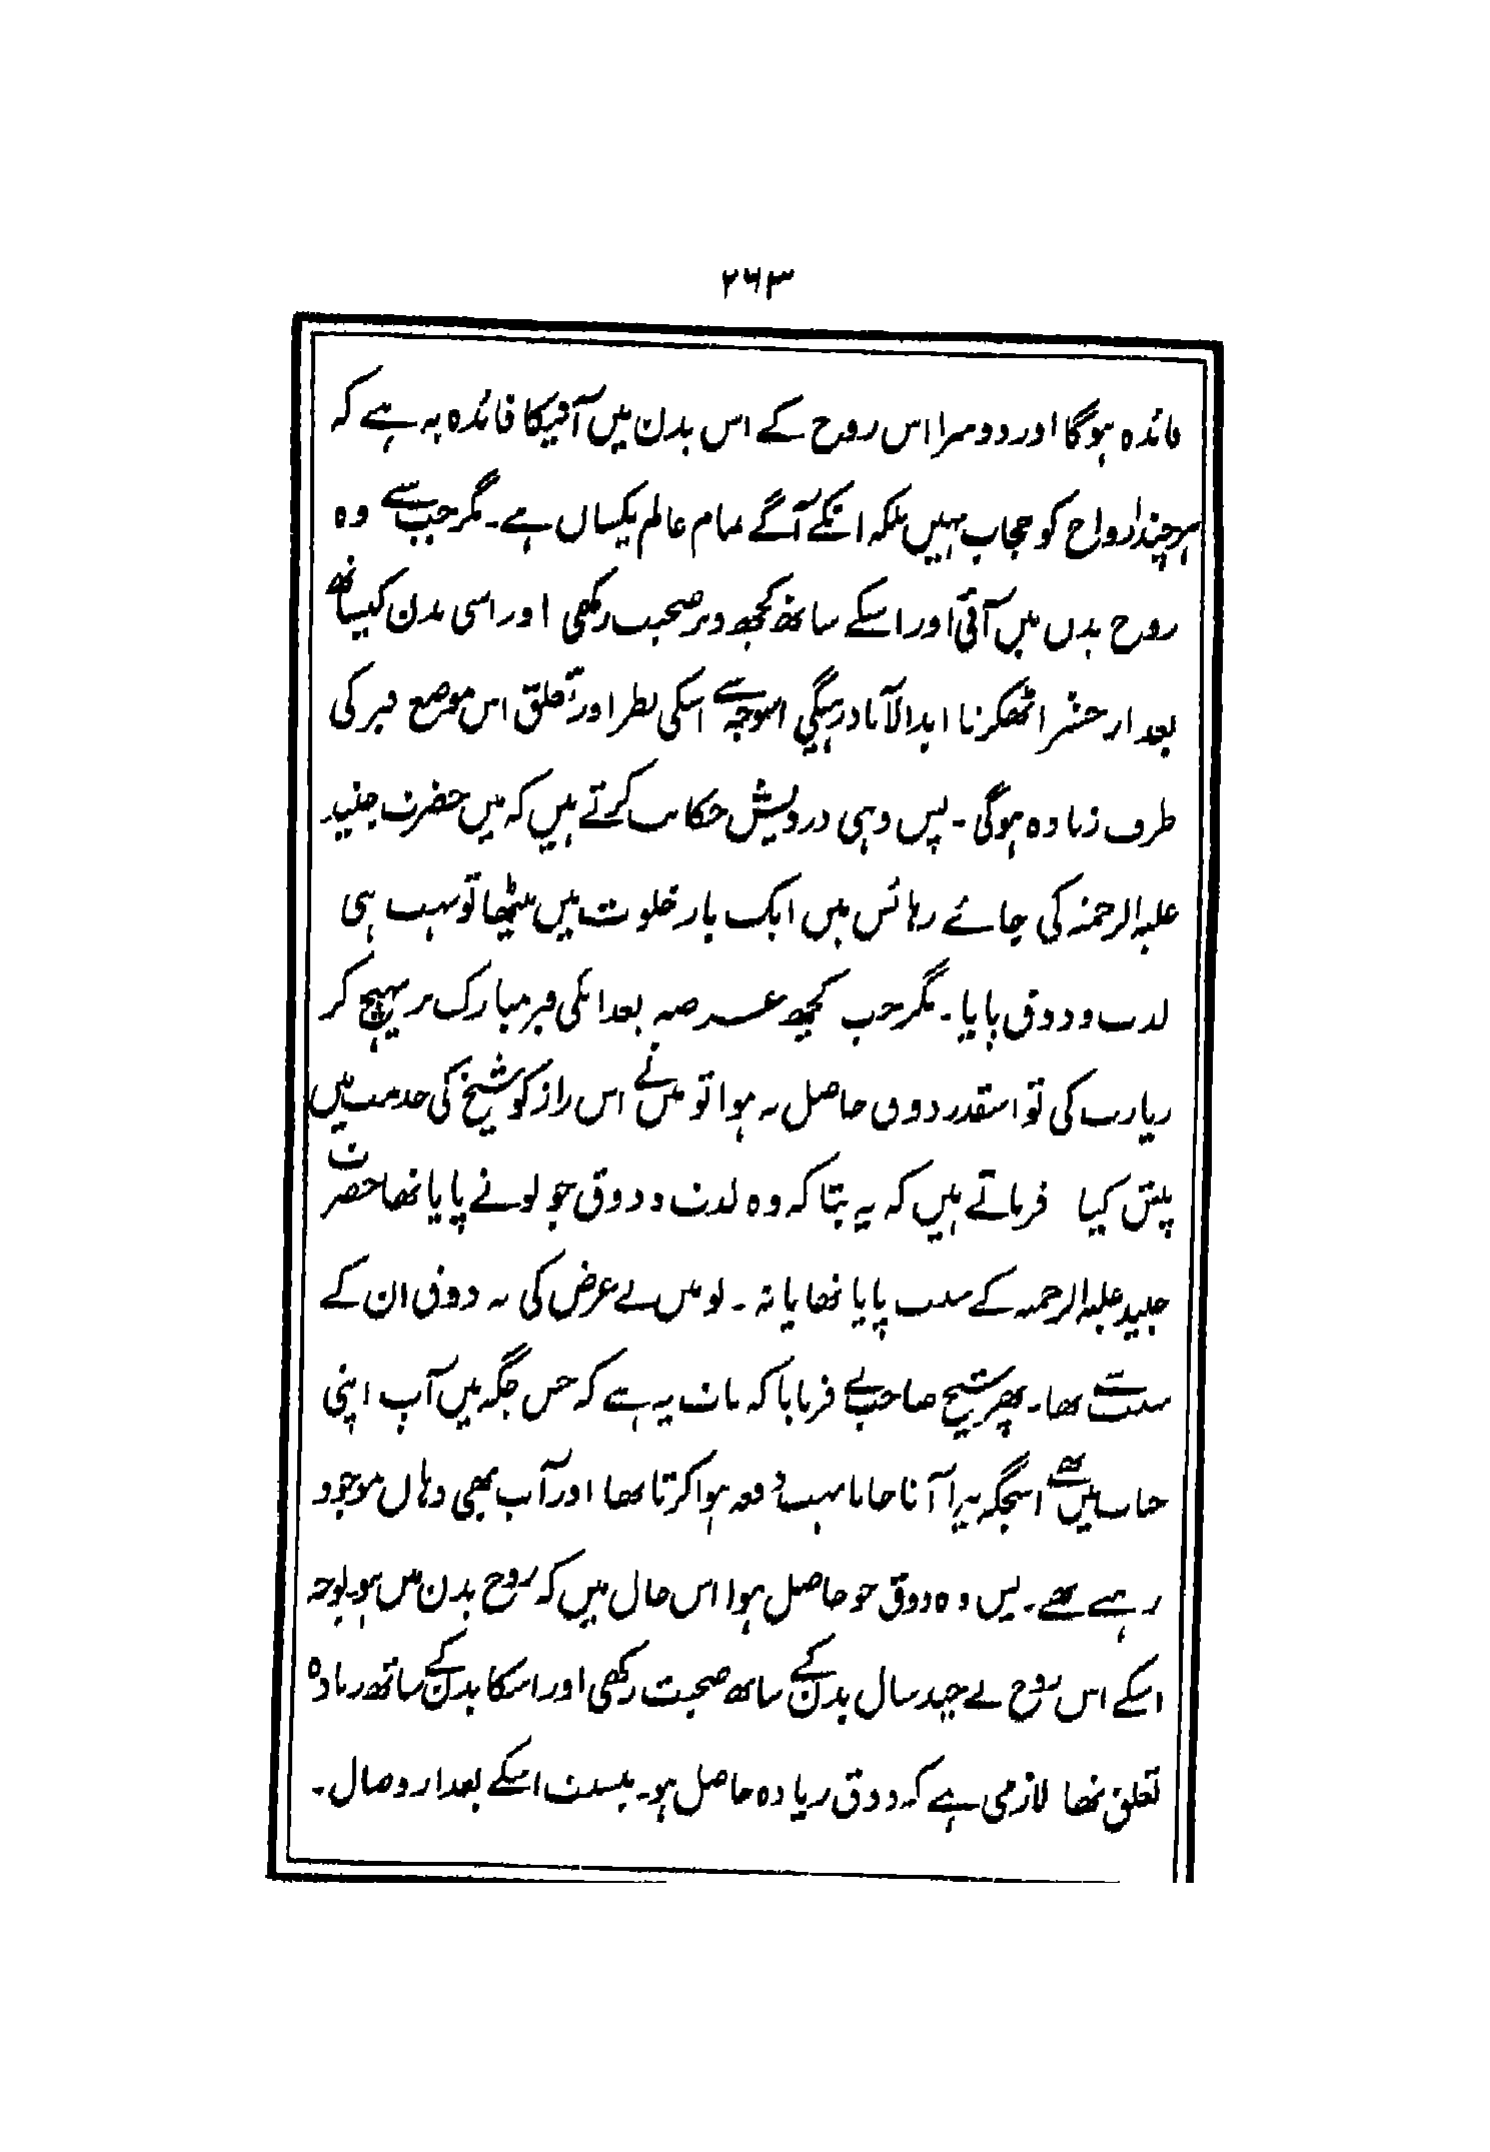 ۲۶۳
فائدہ ہوگا اور دوسرا اس روح کے اس بدن میں آنیکا فائدہ یہ ہے کہ
ہرچند ارواح کو حجاب نہیں بلکہ انکے آگے تمام عالم یکساں ہے۔ مگر جب سے وہ
روح بدن میں آئی اور اسکے ساتھ کچھ دیر صحبت رکھی اور اسی بدن کیساتھ
بعد از حشر اٹھکرنا ابدالآباد رہیگی اسوجہ سے اسکی نظر اور تعلق اس موضع قبر کی
طرف زیادہ ہوگی۔ پس وہی درویش حکایت کرتے ہیں کہ میں حضرت جنید
علیہ الرحمۃ کی جائے رہائس میں ایک بار خلوت میں بیٹھا تو بہت ہی
لذت و ذوق پایا۔ مگر جب کچھ عرصہ بعد انکی قبر مبارک پر پہنچ کر
زیارت کی تو اسقدر ذوق حاصل نہ ہوا تو میں نے اس راز کو شیخ کی خدمت میں
پیش کیا فرماتے ہیں کہ یہ بتا کہ وہ لذت و ذوق جو تونے پایا تھا حضرت
جنید علیہ الرحمہ کے سبب پایا تھا یا نہ۔ تو میں نے عرض کی یہ ذوق ان کے
سبب سے تھا۔ پھر شیخ صاحب نے فرمایا کہ بات یہ ہے کہ جس جگہ میں آپ اپنی
حیات میں تھے اسجگہ پر آنا جانا بہت دفعہ ہوا کرتا تھا اور آپ بھی وہاں موجود
رہے تھے۔ پس وہ ذوق جو حاصل ہوا اس حال میں کہ روح بدن میں ہو۔ بوجہ
اسکے اس روح نے چند سال بدن کے ساتھ صحبت رکھی اور اسکا بدن کے ساتھ زیادہ
تعلق تھا لازمی ہے کہ ذوق زیادہ حاصل ہو۔ بنسبت اسکے بعد از وصال۔